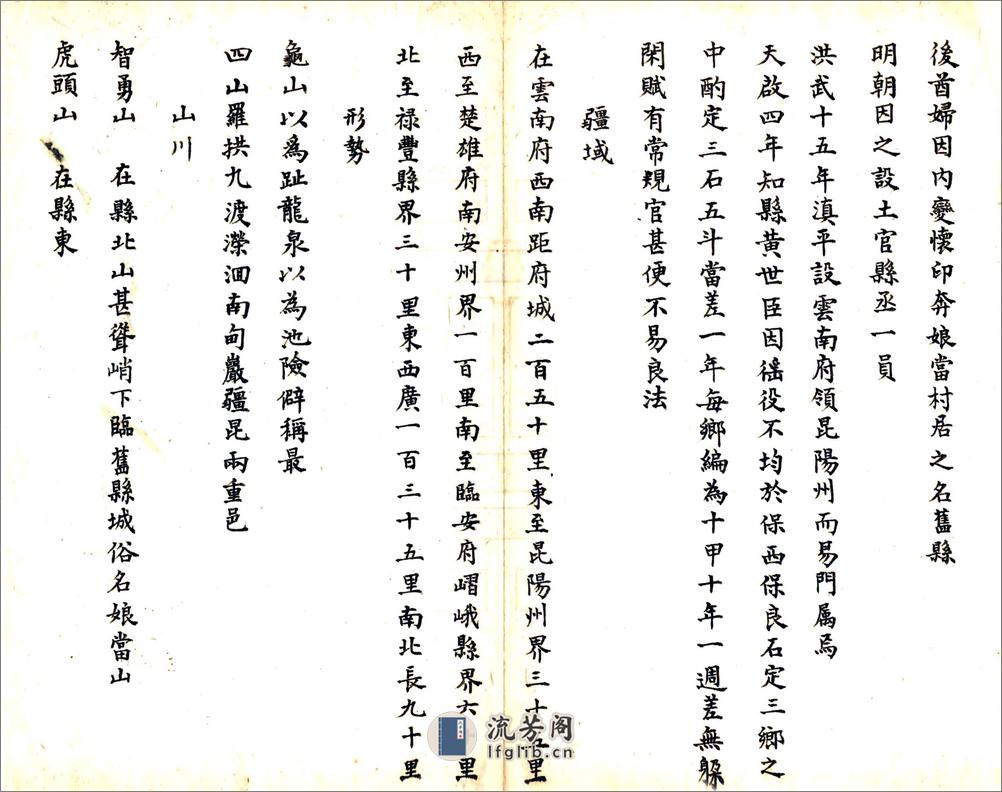 後酋婦因內變懷印奔娘當村居之名舊縣
明朝因之設土官縣丞一員
洪武十五年滇平設雲南府領昆陽州而易門属焉
天啟四年知縣黃世臣因徭役不均於保西保良石定三鄉之
中酌定三石五斗當差一年每鄉編為十甲十年一週差無躲
閑賦有常規官甚便不易良法
疆域
在雲南府西南距府城二百五十里東至昆陽州界三十五里
西至楚雄府南安州界一百里南至臨安府嶍峨縣界六 里
北至禄豐縣界三十里東西廣一百三十五里南北長九十里
形勢
龜山以爲趾龍泉以為池險僻稱最
四山羅拱九渡濴洄南甸巖疆昆兩重邑
山川
智勇山 在縣北山甚聳峭下臨舊縣城俗名娘當山
虎頭山 在縣東
流芳阁
lfglib.cn